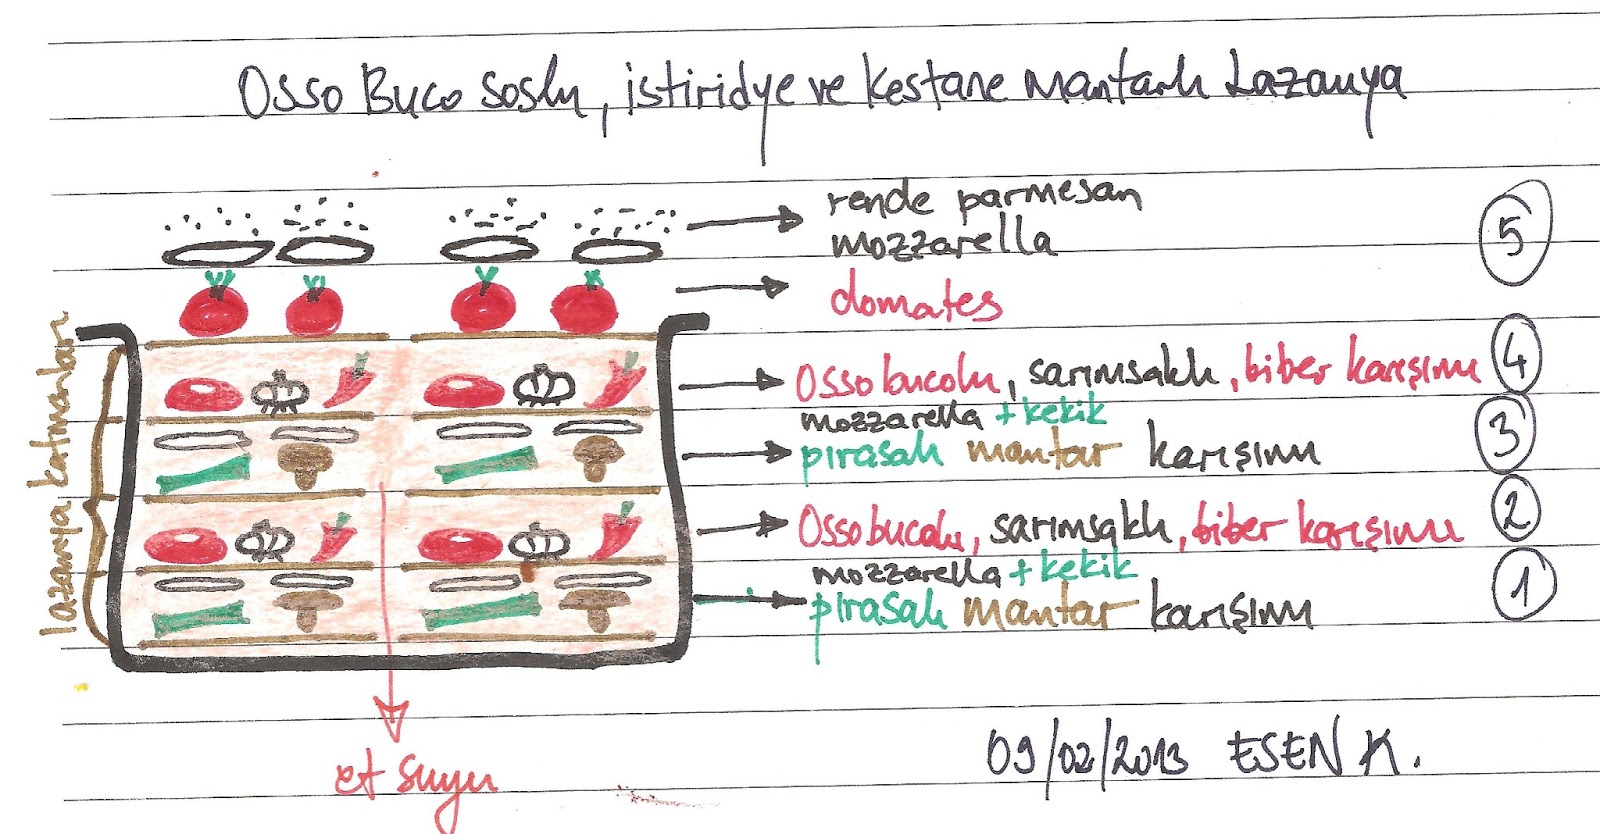 Osso Buco soslu, istiridye ve kestane mantarlı Lazanya
rende parmesan
mozzarella
5
domates
lazanya katmanları
Ossobucolu, sarımsaklı, biber karışımı 4
mozzarella + kekik
pırasalı mantar karışımı 3
Ossobucolu, sarımsaklı, biber karışımı 2
mozzarella + kekik
pırasalı mantar karışımı 1
et suyu
09/02/2013 ESEN K.